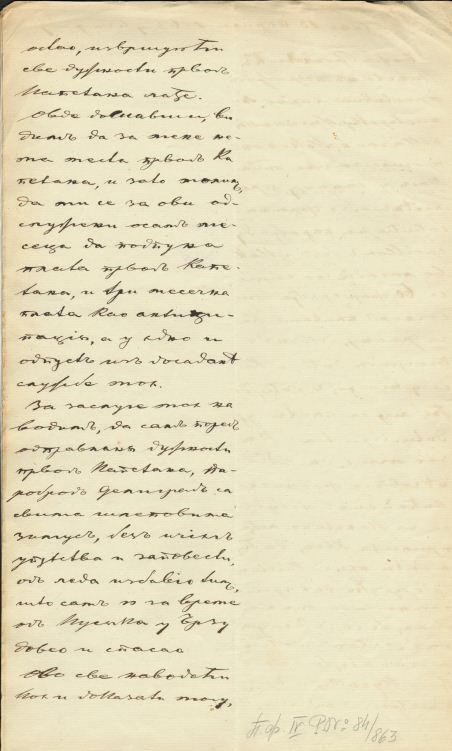 остао, извршуюћи
све дужности првогъ
Капетана лађе.
Овде дошавши, ви
димъ да за мене не-
ма места првогъ Ка
петана, и зато молимъ,
да ми се за ови од-
служени осамъ ме-
сеца да подпуна
плата првогъ Капе-
тана, и три месечна
плата као антици-
пація, а у едно и
одпустъ изъ досадање
службе мое.
За заслуге мое на
водимъ, да самъ поредъ
одправляня дужности
првогъ Капетана, Па-
робродъ Делиградъ са
свима шлеповима
зимусъ, безъ ичіегъ
упутства и заповести,
одъ леда избавіо тимъ,
што самъ и за време
одъ Кусяка у Брзу
довео и спасао
Ово све наводећи
кои и доказати могу,
П. ф. IV РАº 84/863